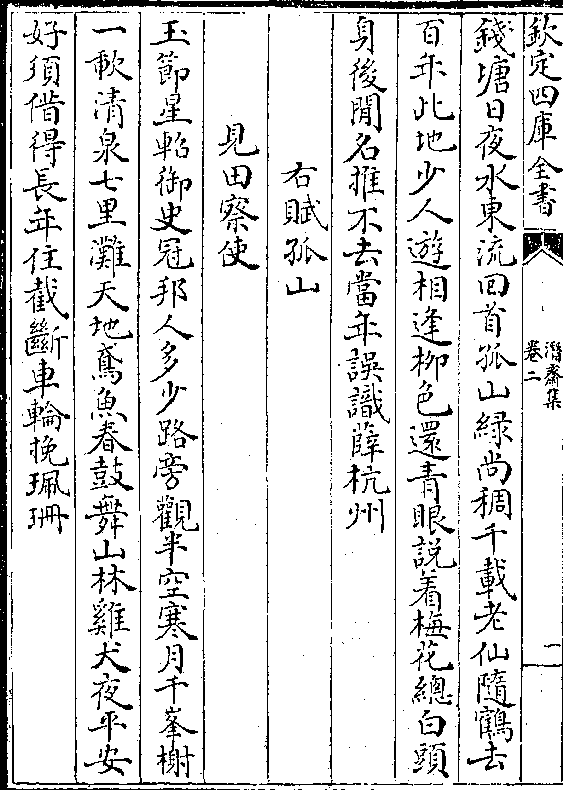 欽定四庫全書
潛齋集
卷二
二
錢塘日夜水東流回首孤山緑尚稠千載老仙隨鶴去
百年此地少人遊相逢柳色還青眼説着梅花總白頭
身後閒名推不去當年誤識薛杭州
右賦孤山
見田察使
玉節星軺御史冠邦人多少路旁觀半空寒月千峯榭
一歃清泉七里灘天地鳶魚春鼓舞山林雞犬夜平安
好須借得長年住截斷車輪挽珮珊